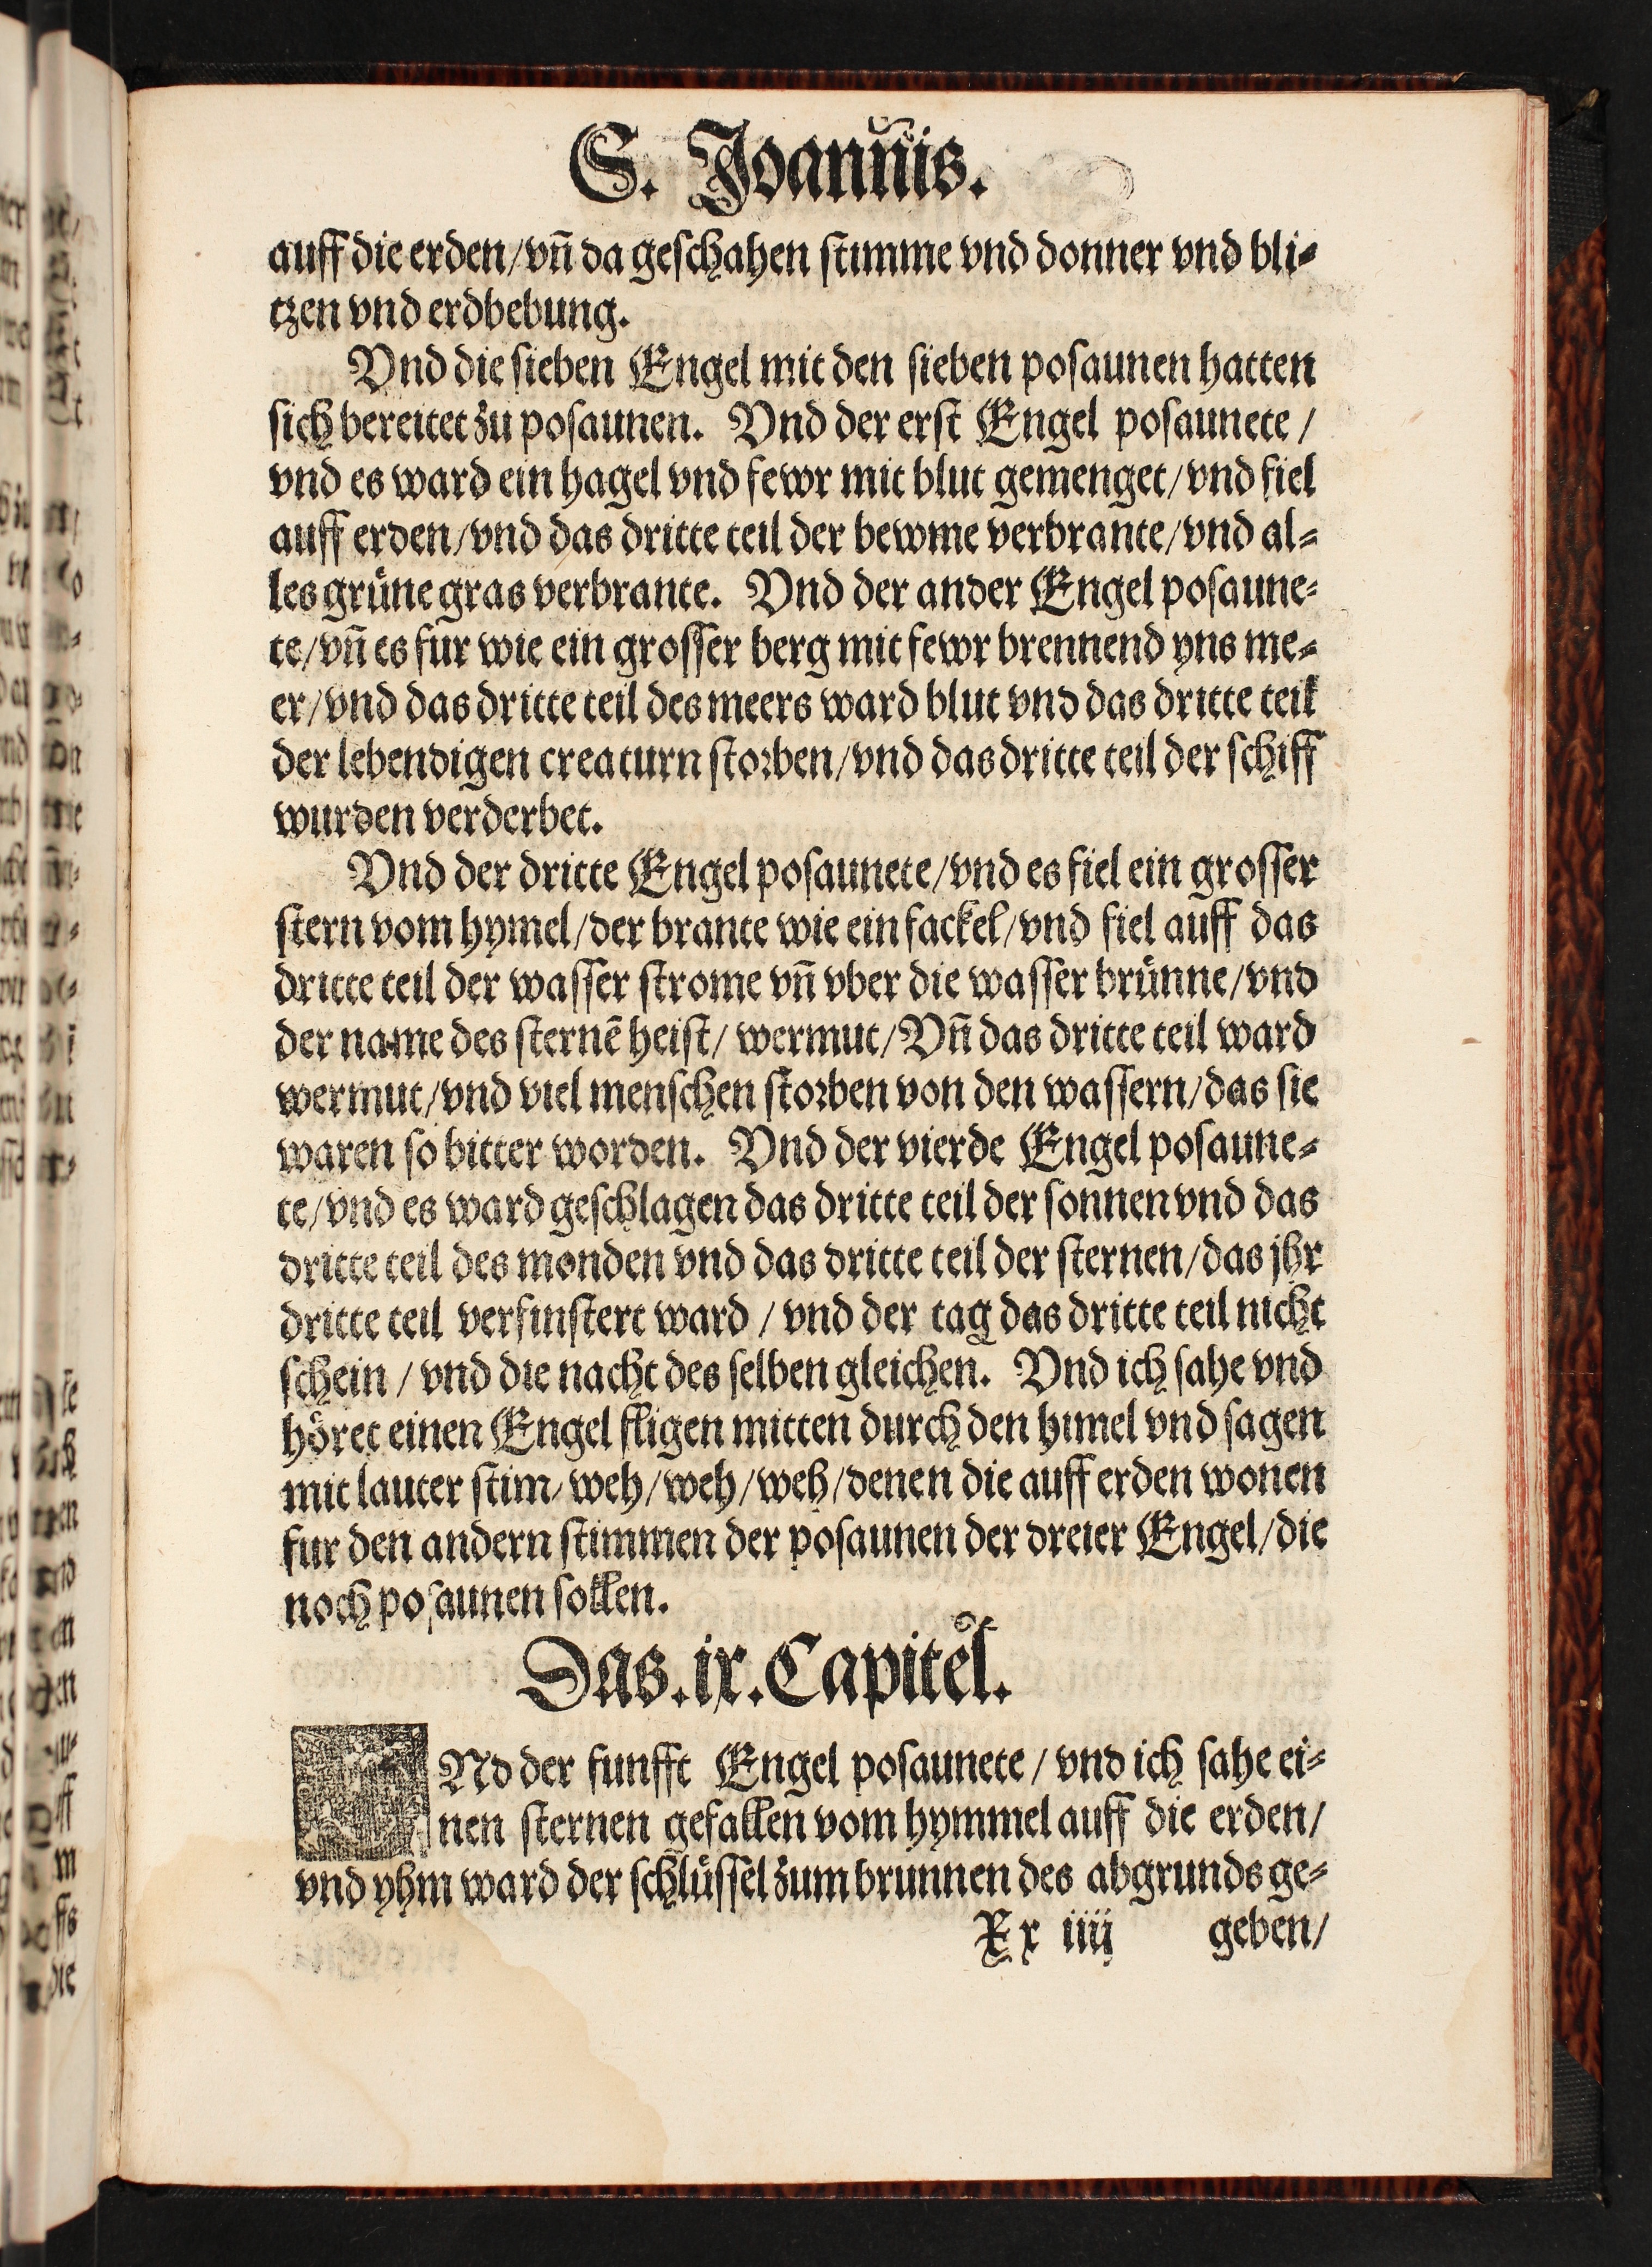 S. Joannis.
auff die erden/vn̄ da geschahen stimme vnd donner vnd bli⸗
tzen vnd erdbebung.
Vnd die sieben Engel mit den sieben posaunen hatten
sich bereitet zu posaunen. Vnd der erst Engel posaunete /
vnd es ward ein hagel vnd fewr mit blut gemenget/vnd fiel
auff erden/vnd das dritte teil der bewme verbrante/vnd al⸗
les grüne gras verbrante. Vnd der ander Engel posaune⸗
te/vn̄ es fur wie ein grosser berg mit fewr brennend yns me⸗
er/vnd das dritte teil des meers ward blut vnd das dritte teil
der lebendigen creaturn storben/vnd das dritte teil der schiff
wurden verderbet.
Vnd der dritte Engel posaunete/vnd es fiel ein grosser
stern vom hymel/der brante wie ein fackel/vnd fiel auff das
dritte teil der wasser strome vn̄ vber die wasser brünne/vnd
der name des sternē heist/ wermut/Vn̄ das dritte teil ward
wermut/vnd viel menschen storben von den wassern/das sie
waren so bitter worden. Vnd der vierde Engel posaune⸗
te/vnd es ward geschlagen das dritte teil der sonnen vnd das
dritte teil des monden vnd das dritte teil der sternen/das jhr
dritte teil verfinstert ward / vnd der tag das dritte teil nicht
schein / vnd die nacht des selben gleichen. Vnd ich sahe vnd
höret einen Engel fligen mitten durch den himel vnd sagen
mit lauter stim/ weh/weh/weh/denen die auff erden wonen
fur den andern stimmen der posaunen der dreier Engel/die
noch posaunen sollen.
Das.ix.Capitel.
VNd der funfft Engel posaunete / vnd ich sahe ei⸗
nen sternen gefallen vom hymmel auff die erden/
vnd yhm ward der schlüssel zum brunnen des abgrunds ge⸗
Xx iiij geben/